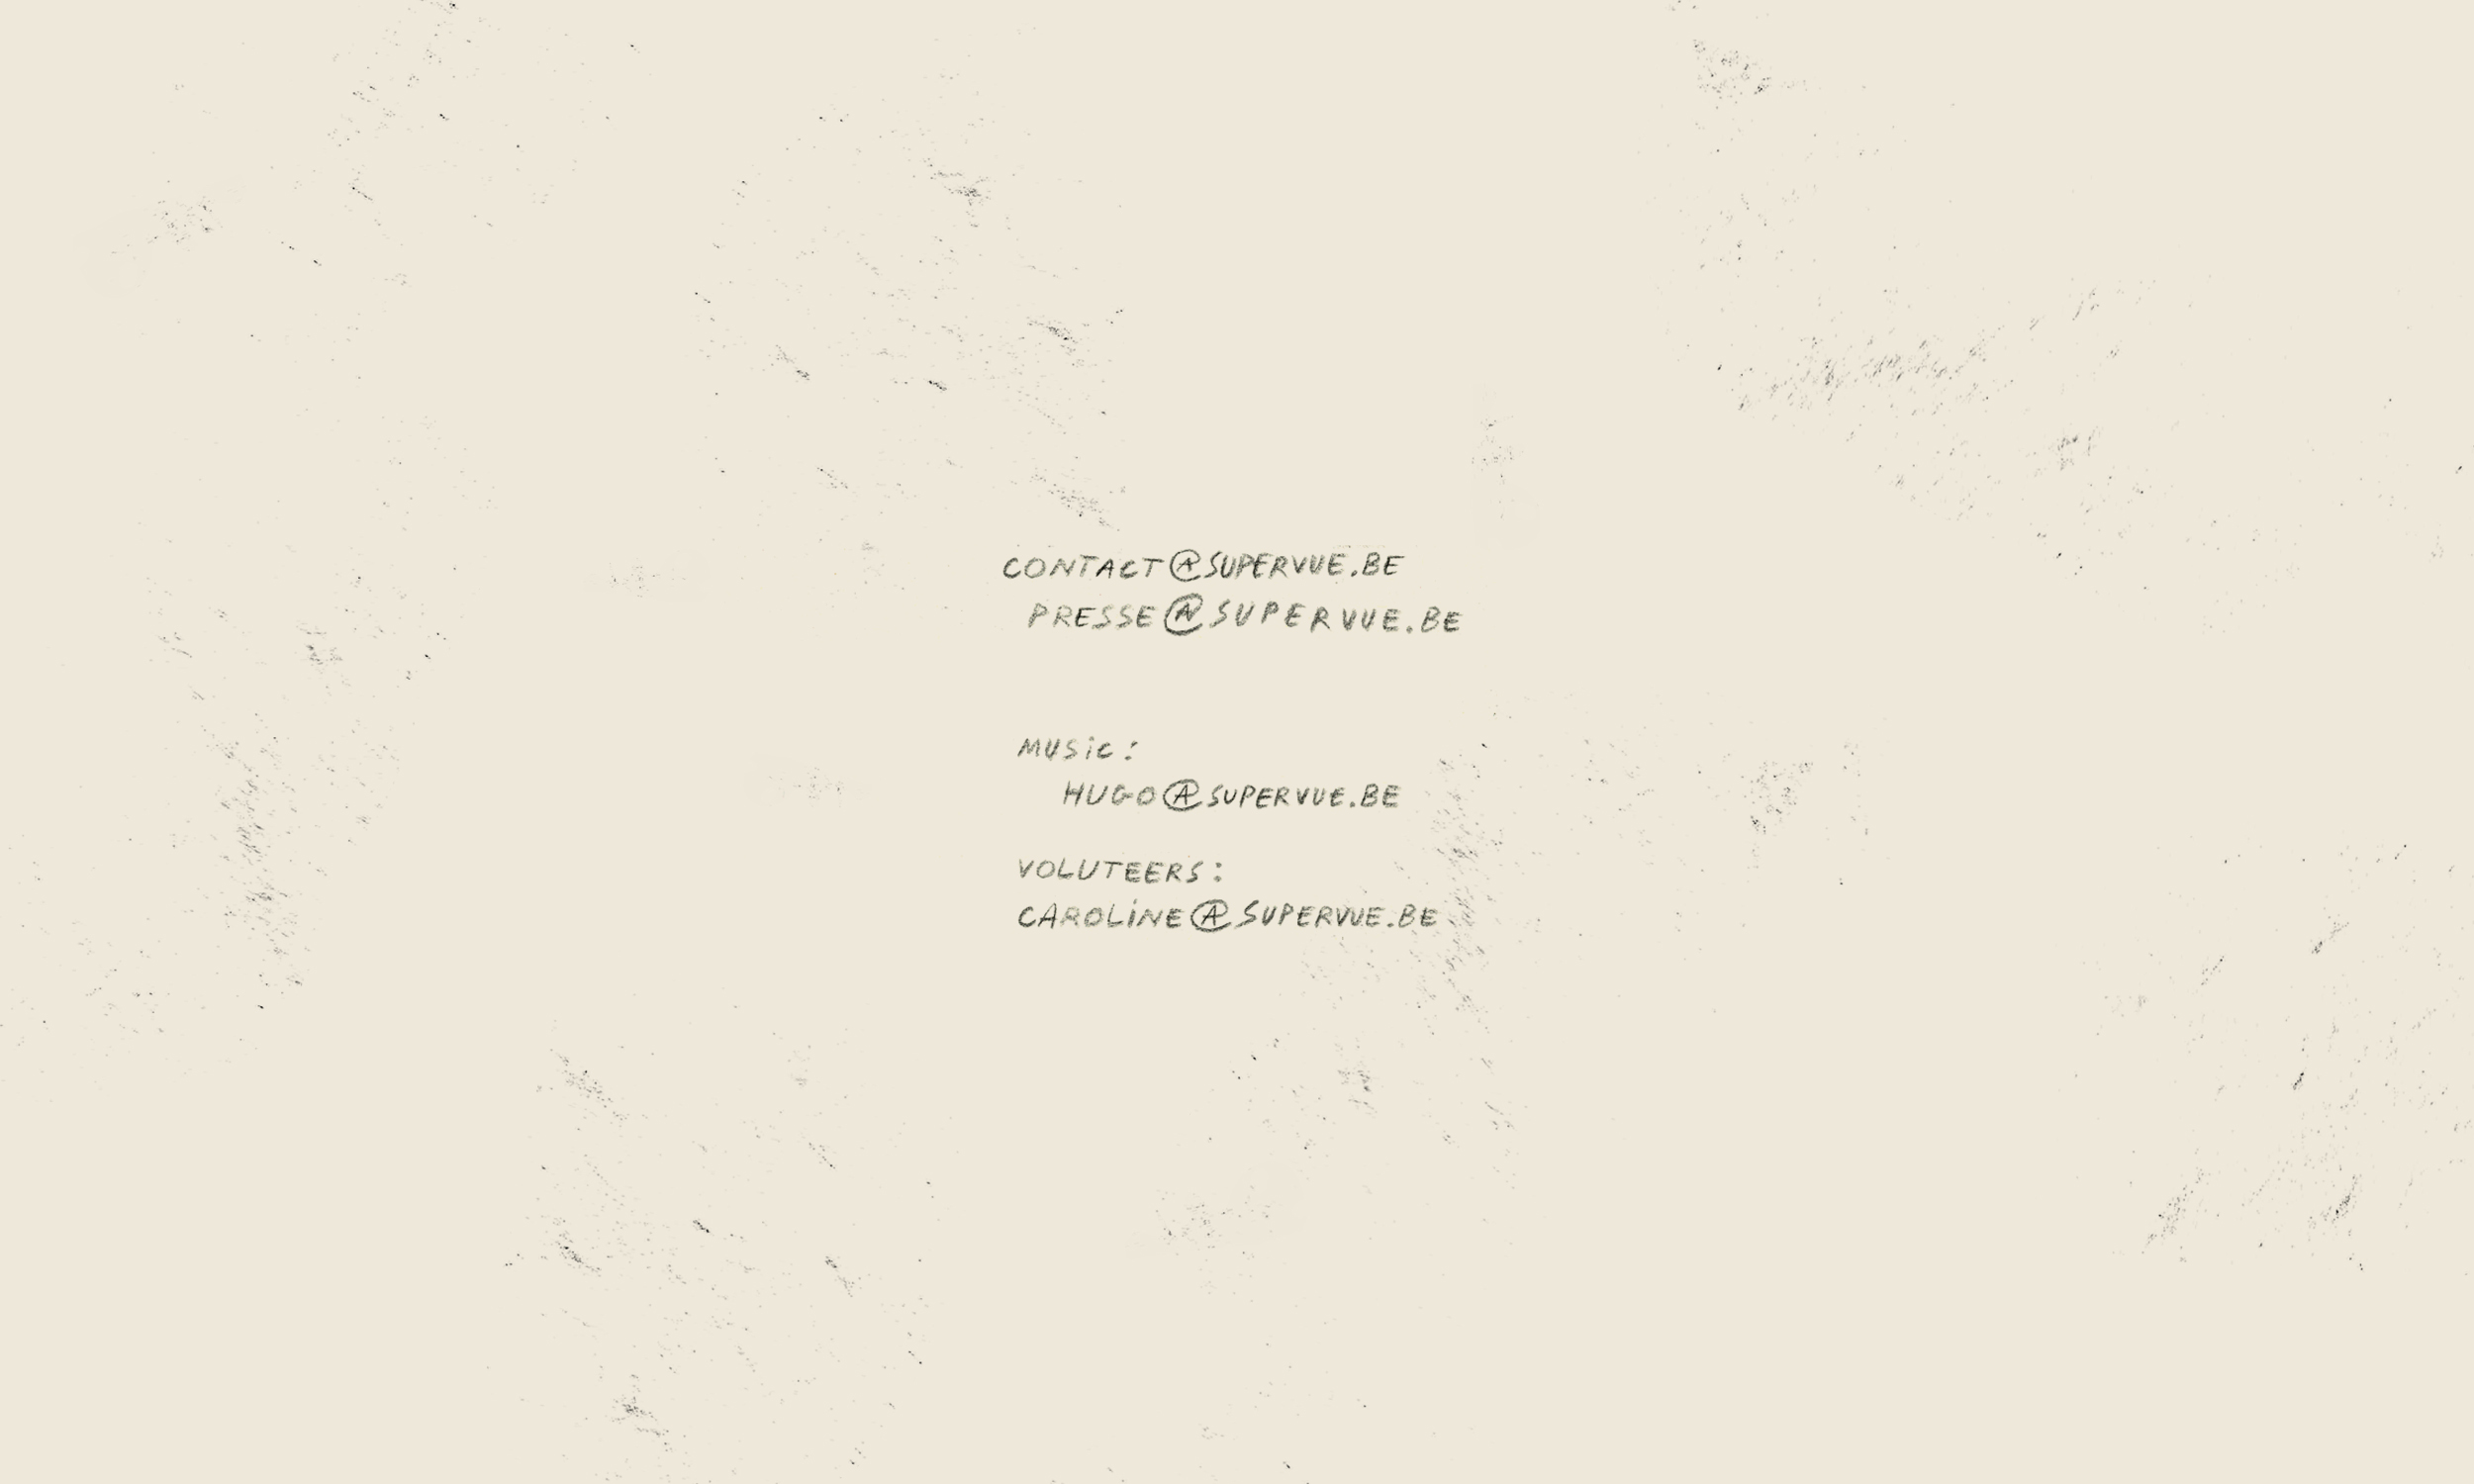 CONTACT@SUPERVUE.BE
PRESSE@SUPERVUE.BE
MUSiC:
HUGO@SUPERVUE.BE
VOLUTEERS:
CAROLiNE@SUPERVUE.BE